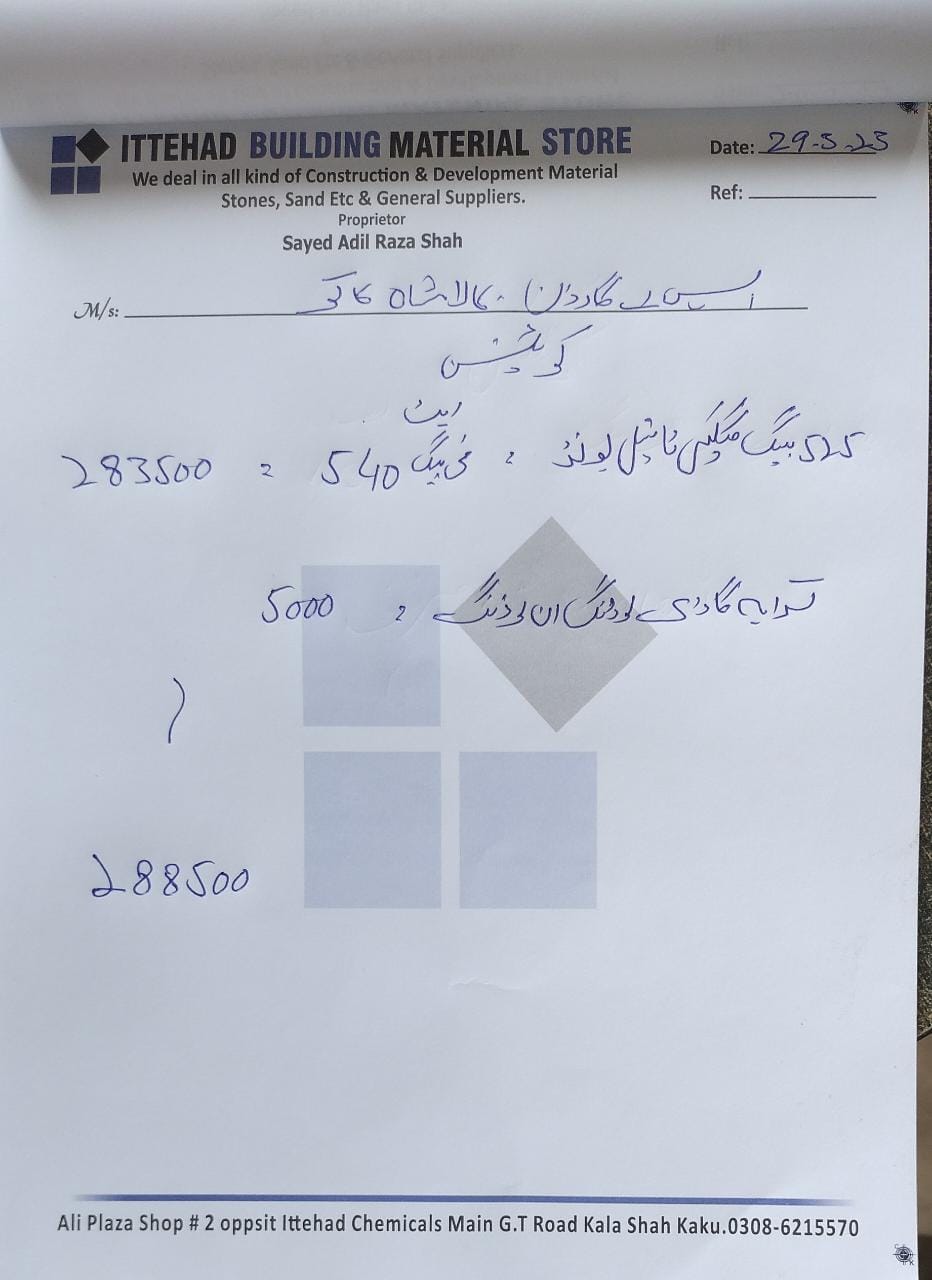 ITTEHAD BUILDING MATERIAL STORE
We deal in all kind of Construction & Development Material
Stones, Sand Etc & General Suppliers.
Proprietor
Sayed Adil Raza Shah
Date: 29-5-23
Ref:
M/s: ایس اے گارڈن، کالا شاہ کاکو
کوٹیشن
ریٹ
525 بیگ میپکس ٹائیل بونڈ = فی بیگ 540 = 283500
کرایہ گاڑی لوڈنگ ان لوڈنگ = 5000
288500
Ali Plaza Shop # 2 oppsit Ittehad Chemicals Main G.T Road Kala Shah Kaku.0308-6215570